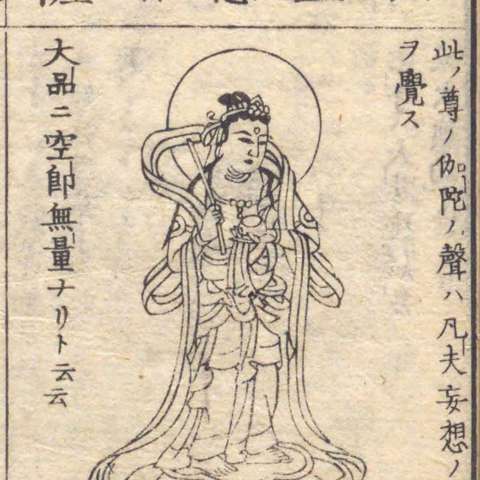 此ノ尊ノ伽陀ノ聲ハ凡夫妄想ノ
ヲ覺ス
大品ニ空即無量ナリト云云